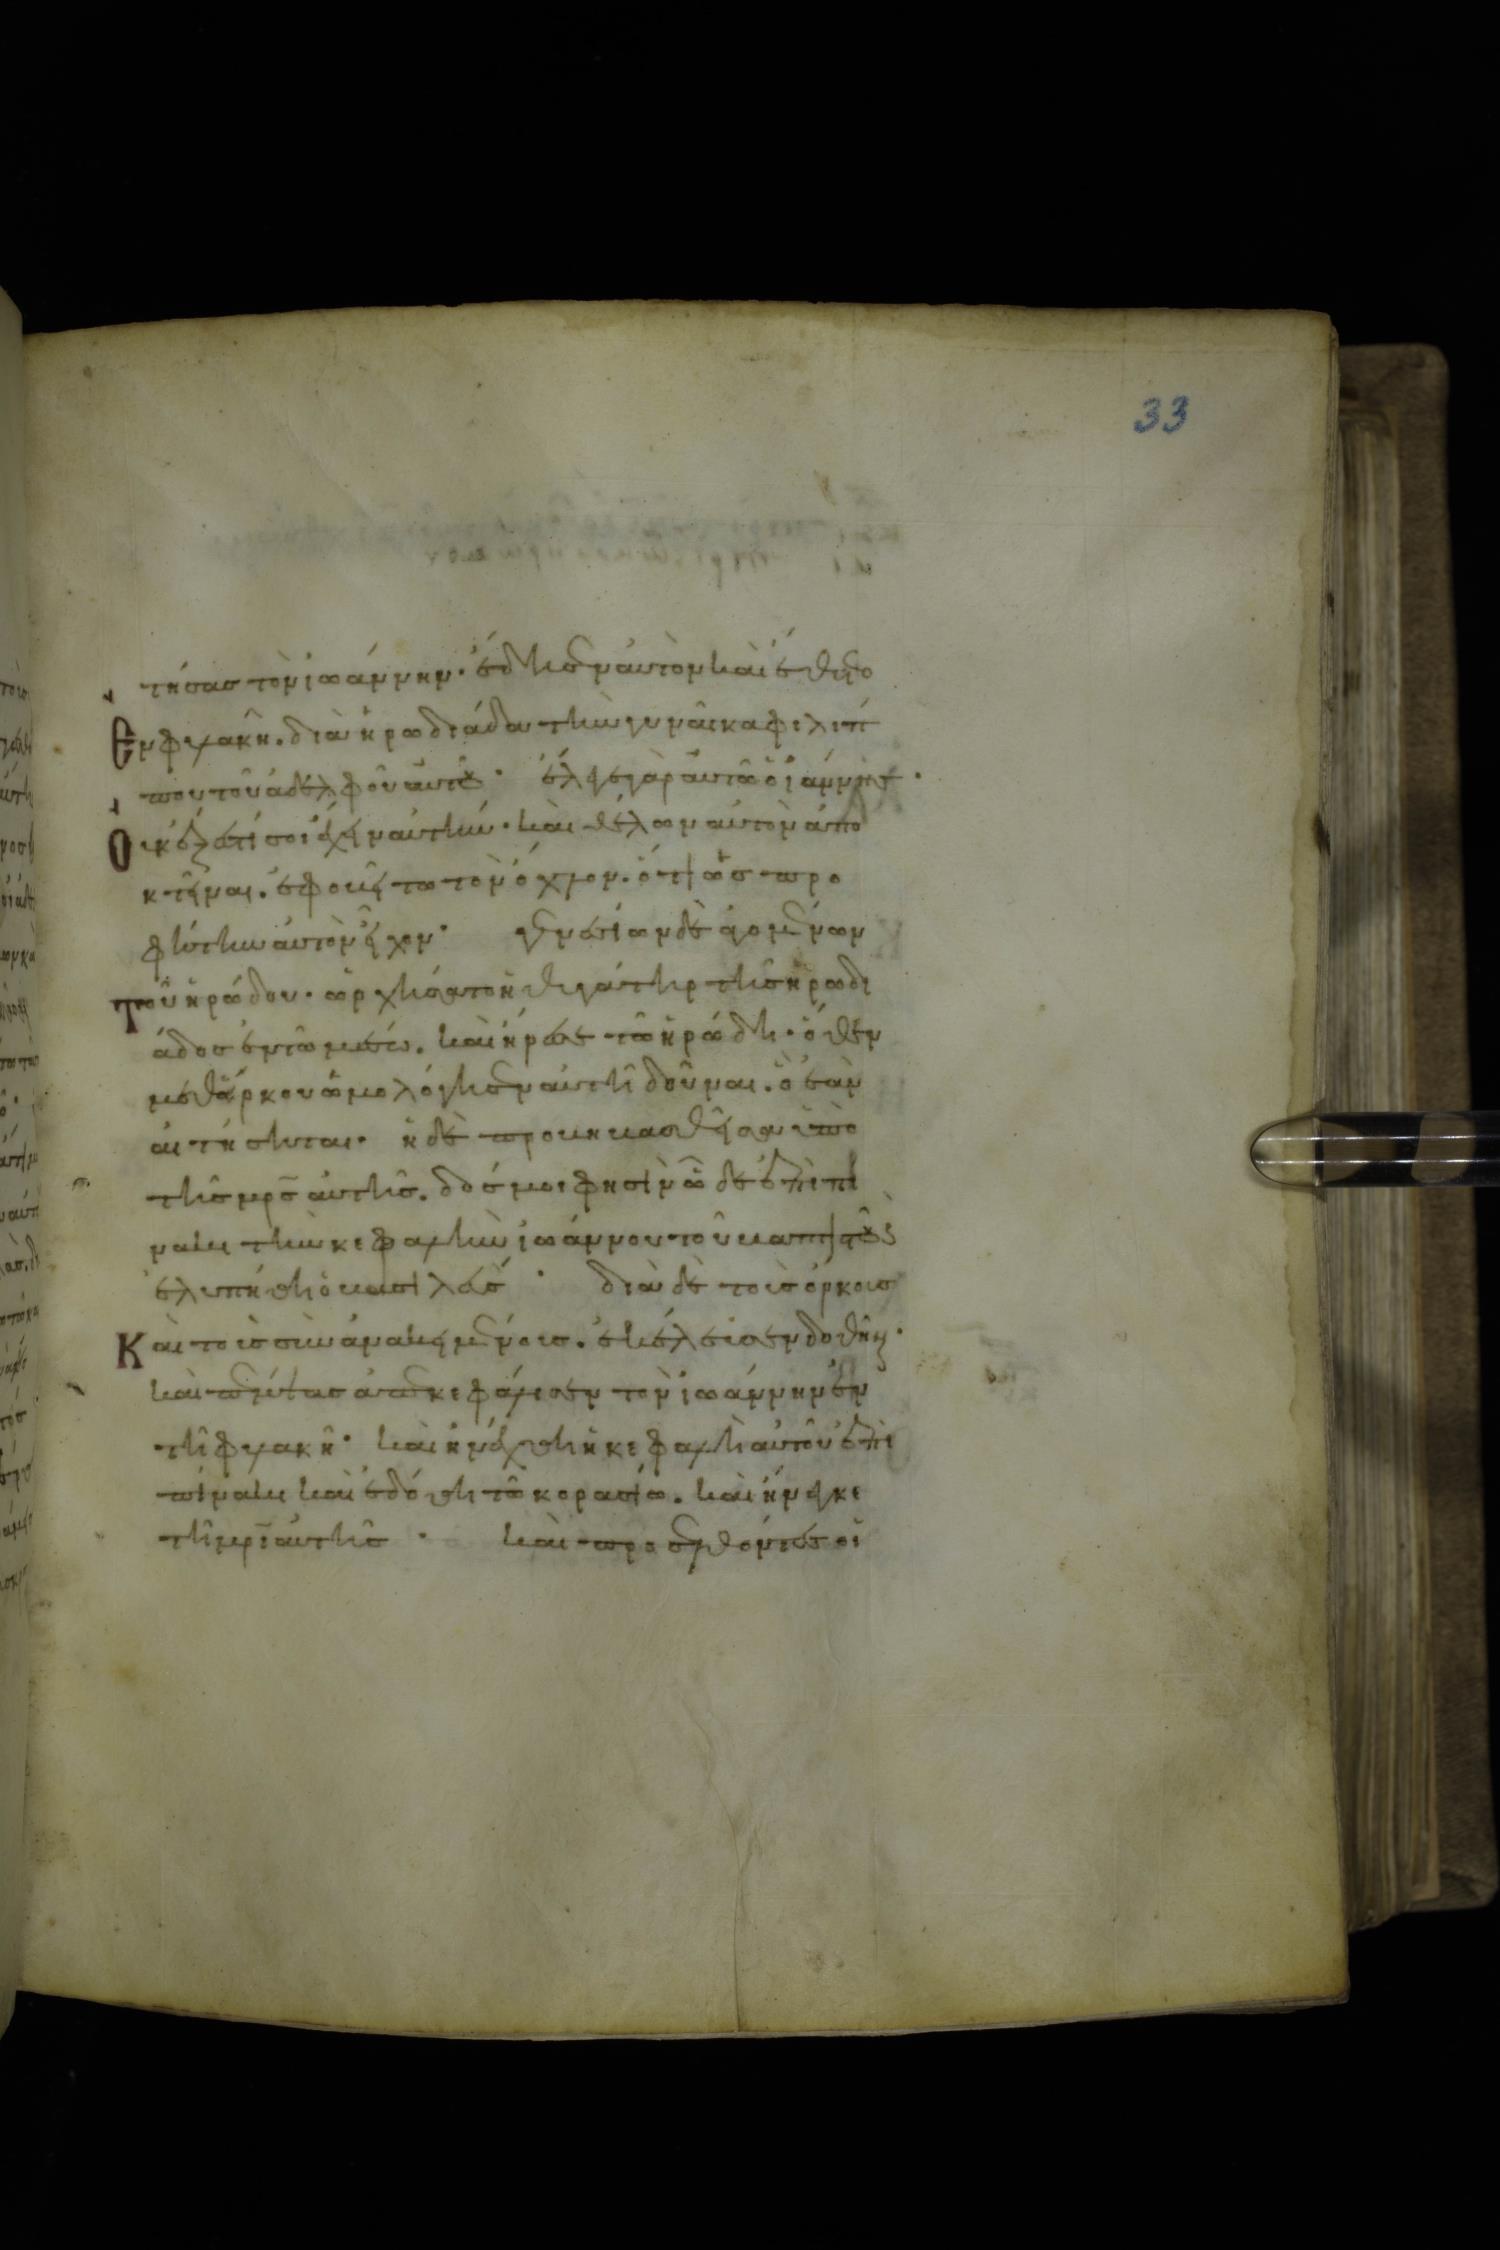 33
τήσας τὸν ἰωάννην· ἔδησεν αὐτὸν καὶ ἔθετο
Ἐν φυλακῆ. διὰ ἡρωδιάδα τὴν γυναῖκα φιλίπ
που τοῦ ἀδελφοῦ αὐτοῦ· ἔλεγε γὰρ αὐτῶ ὁ ἰωάννης·
Οὐκ ἔξεστί σοι ἔχειν αὐτήν· καὶ θέλων αὐτὸν ἀπο
κτεῖναι. ἐφοβήθη τὸν ὄχλον. ὅτι ὡς προ
φήτην αὐτὸν εἶχον· γενεσίων δὲ ἀγομένων
Τοῦ ἡρώδου· ὠρχήσατο ἡ θυγάτηρ τῆς ἡρωδι
άδος ἐν τῶ μέσω. καὶ ἤρεσε τῶ ἡρώδη· ὅθεν
μεθ ὅρκου ὡμολόγησεν αὐτῆ δοῦναι. ὃ ἐὰν
αἰτήσηται· ἡ δὲ προβιβασθεῖσα ὑπὸ
τῆς μρς αὐτῆς. δός μοι φησὶν ὧδε ἐπὶ πί
νακι τὴν κεφαλὴν ἰωάννου τοῦ βαπτιστοῦ
ἐλυπήθη ὁ βασιλεὺς· διὰ δὲ τοὺς ὅρκους
Καὶ τοὺς συνανακειμένους. ἐκέλευσεν δοθῆναι·
καὶ πέμψας ἀπεκεφάλισεν τὸν ἰωάννην ἐν
τῆ φυλακῆ· καὶ ἠνέχθη ἡ κεφαλὴ αὐτοῦ ἐπὶ
πίνακι καὶ ἐδόθη τῶ κορασίω. καὶ ἤνεγκε
τῆ μρι αὐτῆς· καὶ προσελθόντες οἱ